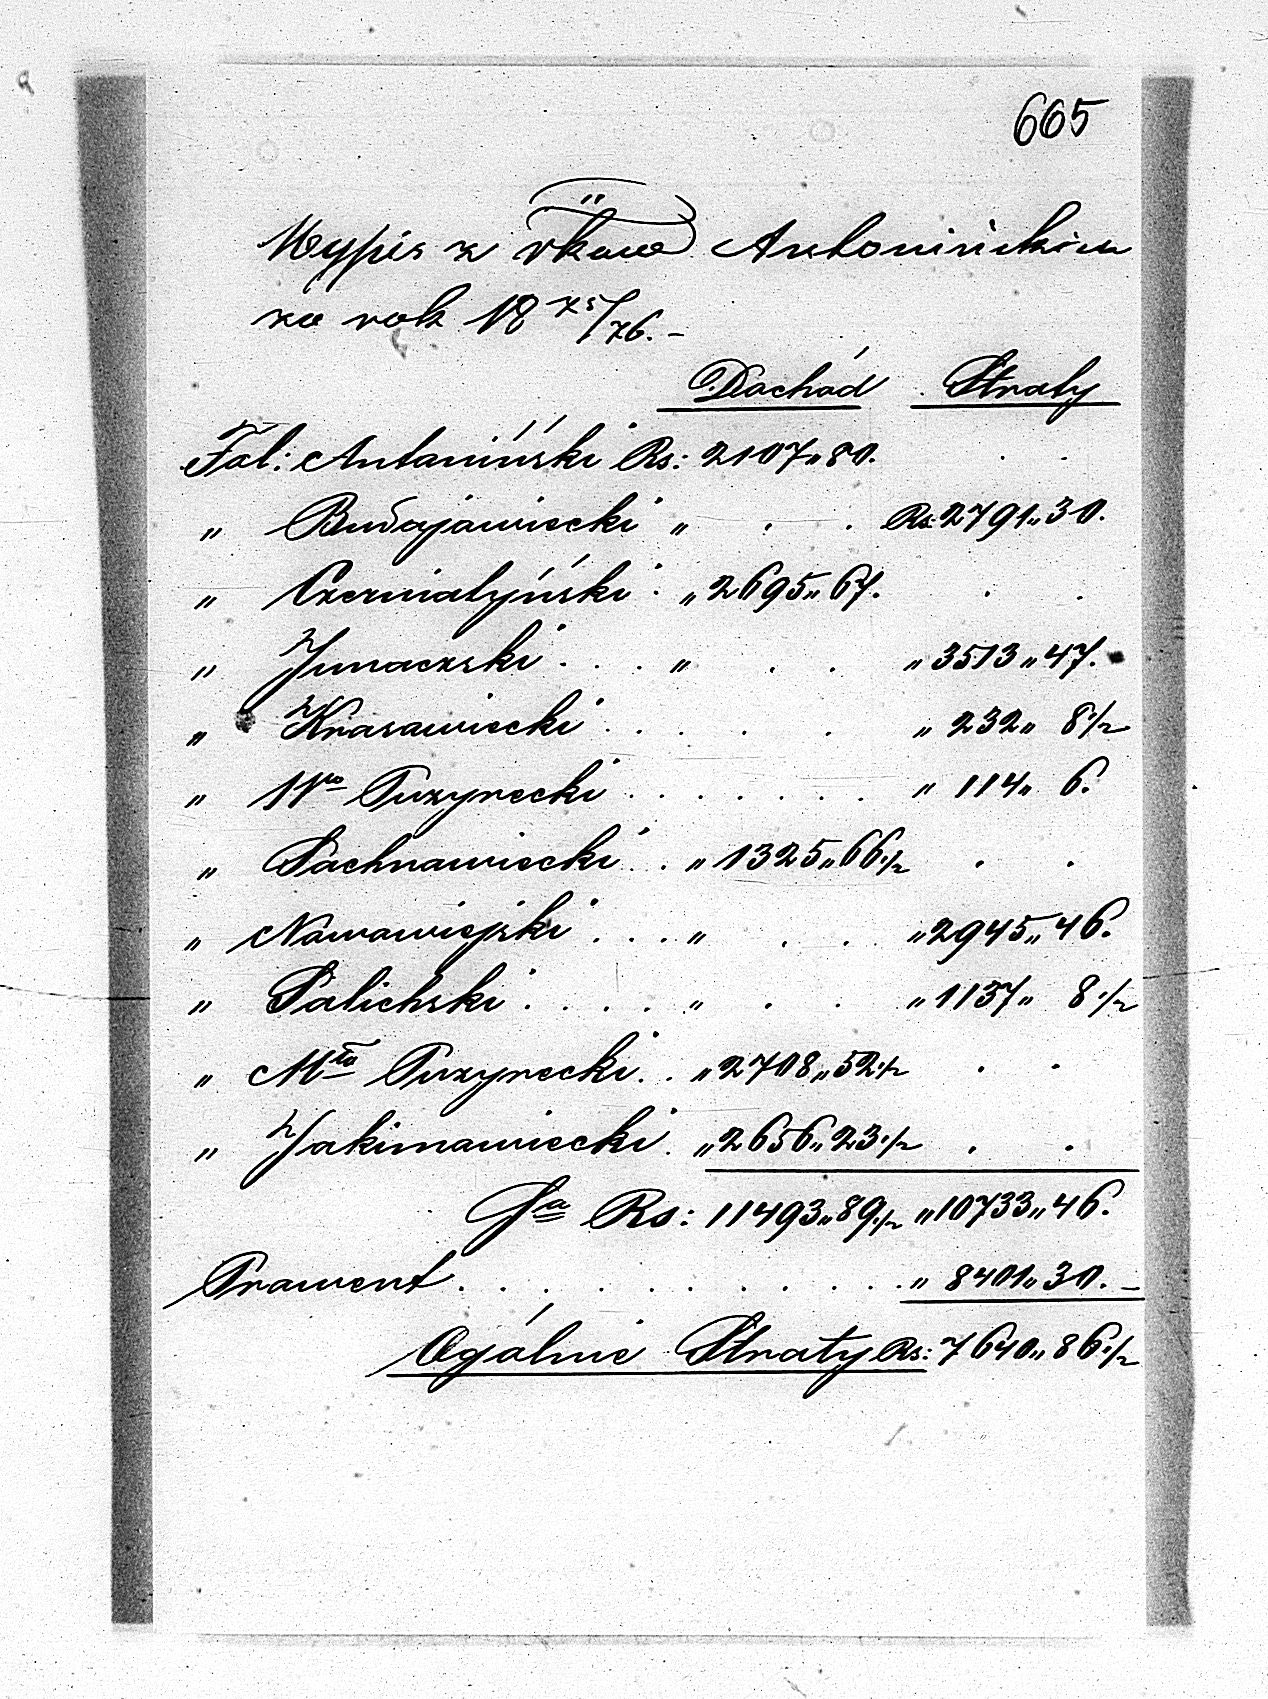 665
Wypis z Antonińskim
za rok 18 75/76. –
Dochód Straty
Fol: Antoniński Rs: 2107 „ 80.
„ Budajowiecki „ . . Rs. 2791 „ 30.
„ Czerniatyński „ 2695 „ 67. . .
„ Junaczki . . . „ . . „ 3513 „ 47.
„ Krasowiecki . . . . „ 232 „ 8 ½
„ Puzyrecki . . . . . . . „ 114 „ 6.
„ Pachnowiecki . „ 1325 „ 66 ½ . .
„ Nowowiejski . . . „ . . „ 2945 „ 46.
„ Salichski . . . . „ . . „ 1137 „ 8 ½
„ Mta Puzyrecki . . „ 2708 „ 52 ½ . .
„ Jakimowiecki . „ 2656 „ 23 ½ . .
Sa Rs: 11493 „ 89 ½ „ 10733 „ 46.
Prowent . . . . . . . . . „ 8401 „ 30. –
Ogólnie Straty Rs: 7640 „ 86 ½